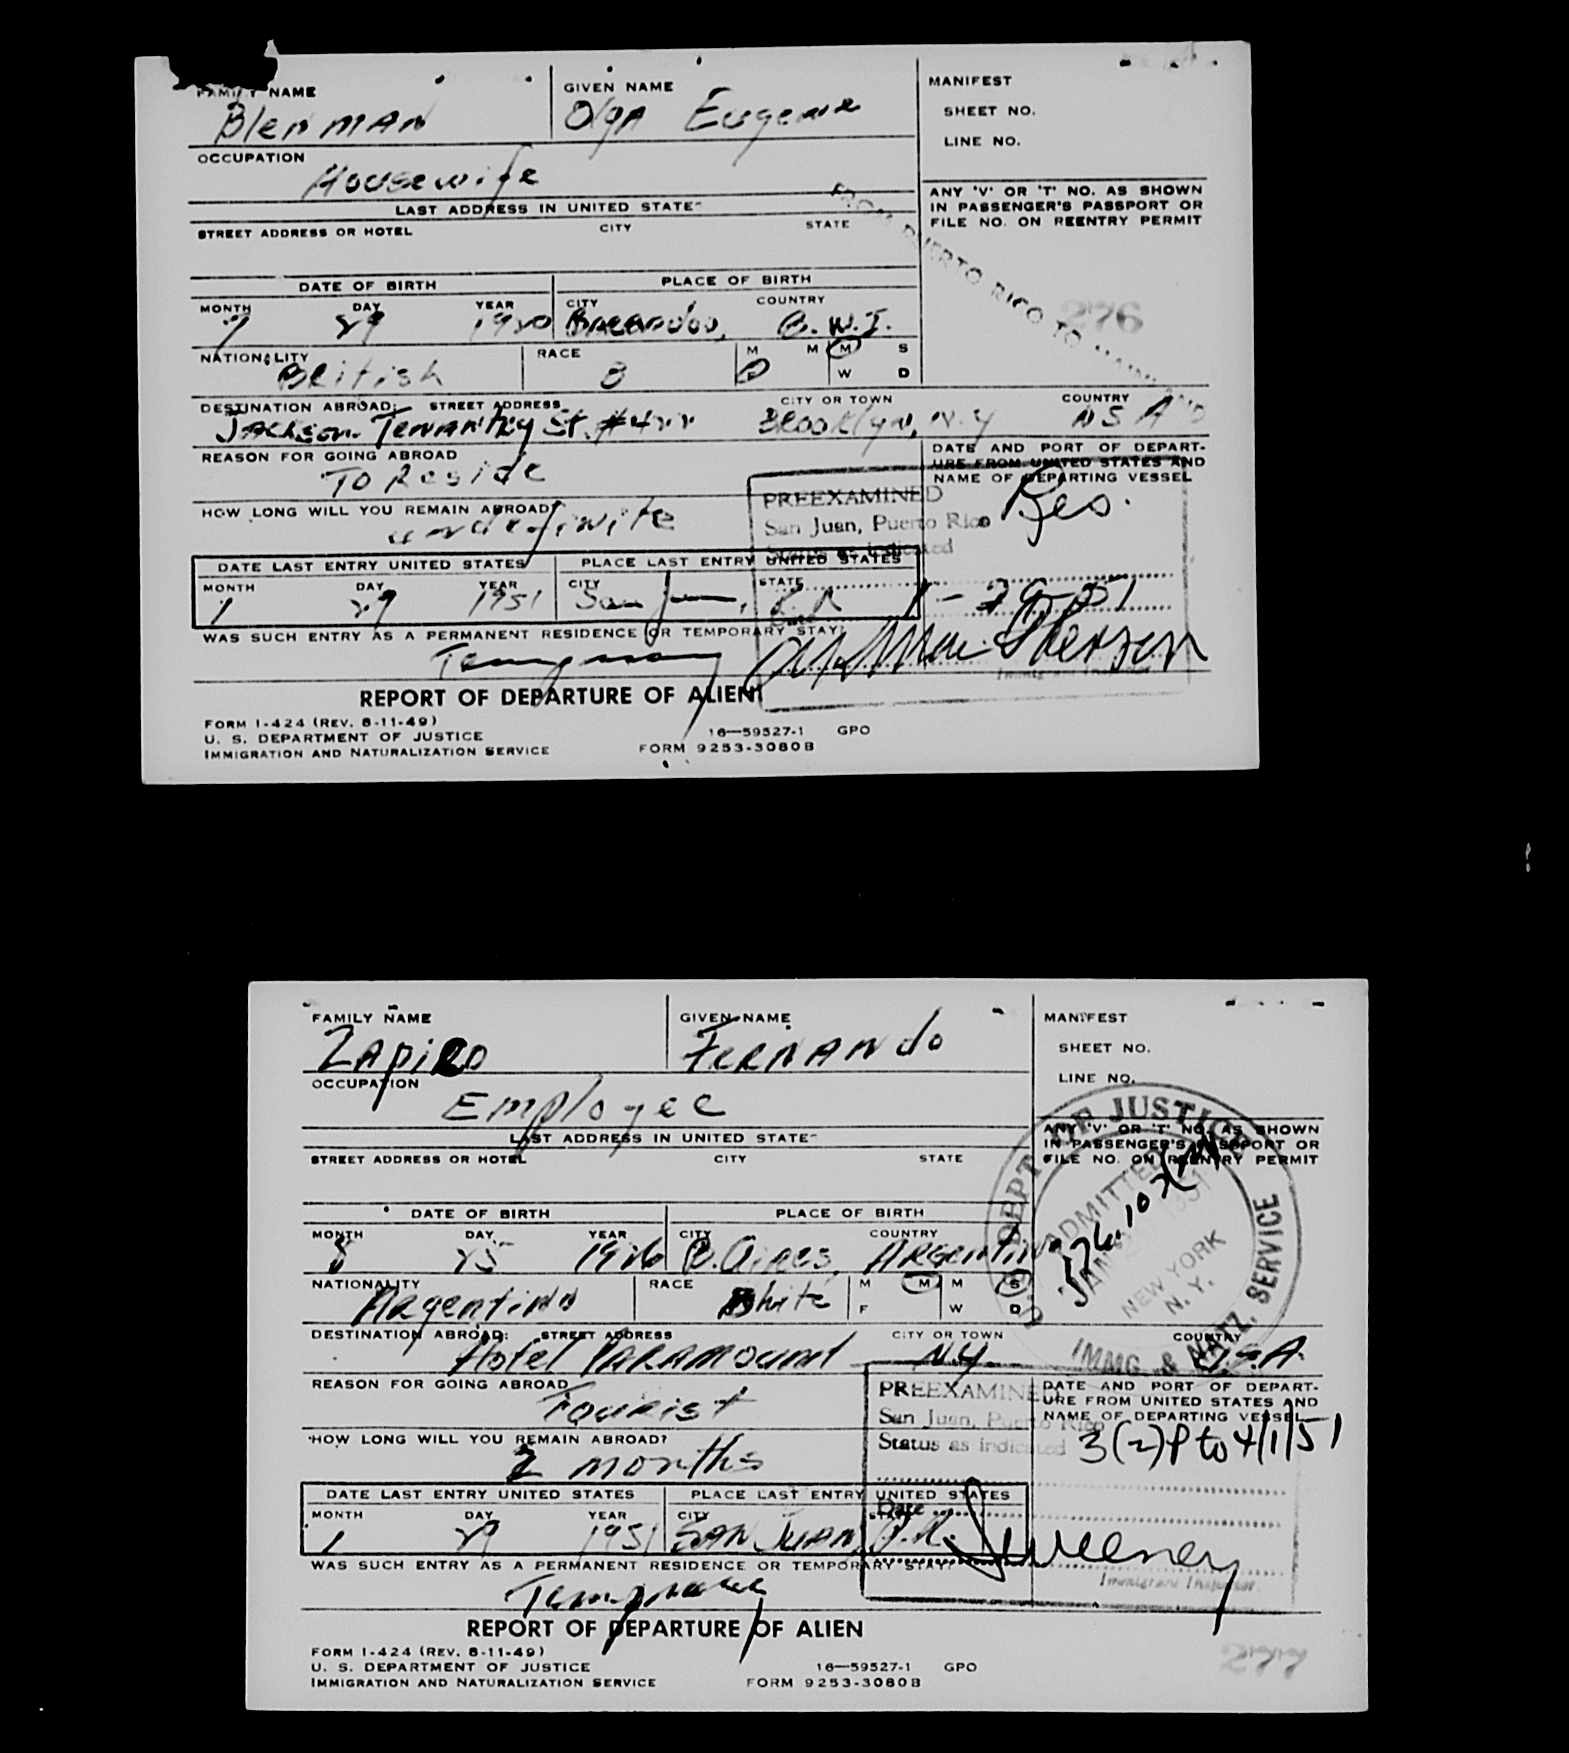 FAMILY NAME GIVEN NAME MANIFEST
Blenman Olga Eugenie SHEET NO.
LINE NO.
OCCUPATION
Housewife
LAST ADDRESS IN UNITED STATE
ANY 'V' OR 'T' NO. AS SHOWN
IN PASSENGER'S PASSPORT OR
FILE NO. ON REENTRY PERMIT
STREET ADDRESS OR HOTEL CITY STATE
FROM PUERTO RICO TO
276
DATE OF BIRTH PLACE OF BIRTH
MONTH DAY YEAR CITY COUNTRY
7 29 1920 Barbados, B.W.I.
NATIONALITY RACE M M M S
British B F W D
DESTINATION ABROAD: STREET ADDRESS CITY OR TOWN COUNTRY
Jackson Tenantry St. Brooklyn, N.Y USA
REASON FOR GOING ABROAD
To Reside
DATE AND PORT OF DEPART-
URE FROM UNITED STATES AND
NAME OF DEPARTING VESSEL
Res.
HOW LONG WILL YOU REMAIN ABROAD
undefinite
PREEXAMINED
San Juan, Puerto Rico
Status as indicated
DATE LAST ENTRY UNITED STATES PLACE LAST ENTRY UNITED STATES
MONTH DAY YEAR CITY STATE
1 29 1951 San Juan, P.R.
Date 1-29-51
WAS SUCH ENTRY AS A PERMANENT RESIDENCE OR TEMPORARY STAY?
Temporary
Immigrant Inspector
REPORT OF DEPARTURE OF ALIEN
FORM I-424 (REV. 8-11-49)
U. S. DEPARTMENT OF JUSTICE 16—59527-1 GPO
IMMIGRATION AND NATURALIZATION SERVICE FORM 9253-3080B
FAMILY NAME GIVEN NAME MANIFEST
Zapiro Fernando SHEET NO.
LINE NO.
OCCUPATION
Employee
LAST ADDRESS IN UNITED STATE
ANY 'V' OR 'T' NO. AS SHOWN
IN PASSENGER'S PASSPORT OR
FILE NO. ON REENTRY PERMIT
STREET ADDRESS OR HOTEL CITY STATE
U.S. DEPT. OF JUSTICE
ADMITTED
JAN 1951
NEW YORK
N. Y.
IMMG. & NATZ. SERVICE
DATE OF BIRTH PLACE OF BIRTH
MONTH DAY YEAR CITY COUNTRY
8 25 1926 B. Aires, Argentina
NATIONALITY RACE M M M S
Argentino White F W D
DESTINATION ABROAD: STREET ADDRESS CITY OR TOWN COUNTRY
Hotel Paramount N.Y. U.S.A.
REASON FOR GOING ABROAD
Tourist
PREEXAMINED
San Juan, Puerto Rico
Status as indicated
DATE AND PORT OF DEPART-
URE FROM UNITED STATES AND
NAME OF DEPARTING VESSEL
3(2)P to 4/1/51
HOW LONG WILL YOU REMAIN ABROAD?
2 months
DATE LAST ENTRY UNITED STATES PLACE LAST ENTRY UNITED STATES
Date
MONTH DAY YEAR CITY STATE
1 29 1951 San Juan, P.R.
Sweeney
WAS SUCH ENTRY AS A PERMANENT RESIDENCE OR TEMPORARY STAY?
Immigrant Inspector
REPORT OF DEPARTURE OF ALIEN
277
FORM I-424 (REV. 8-11-49)
U. S. DEPARTMENT OF JUSTICE 16—59527-1 GPO
IMMIGRATION AND NATURALIZATION SERVICE FORM 9253-3080B